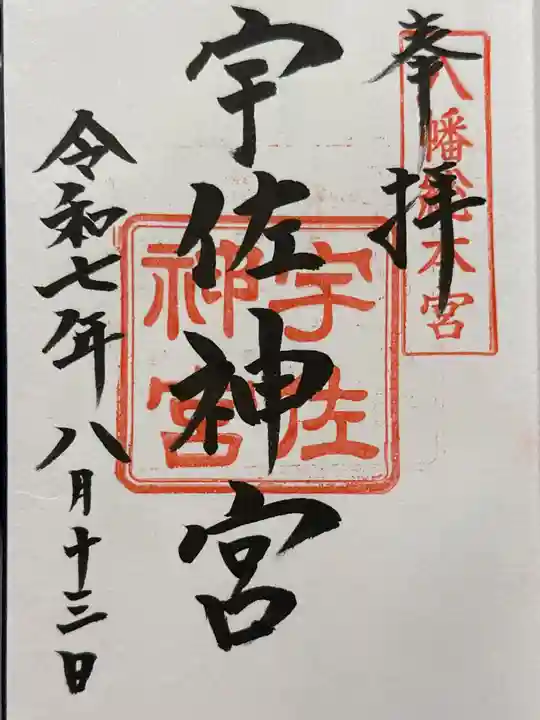 奉拝
八幡総本宮
宇佐神宮
宇佐
神宮
令和七年八月十三日